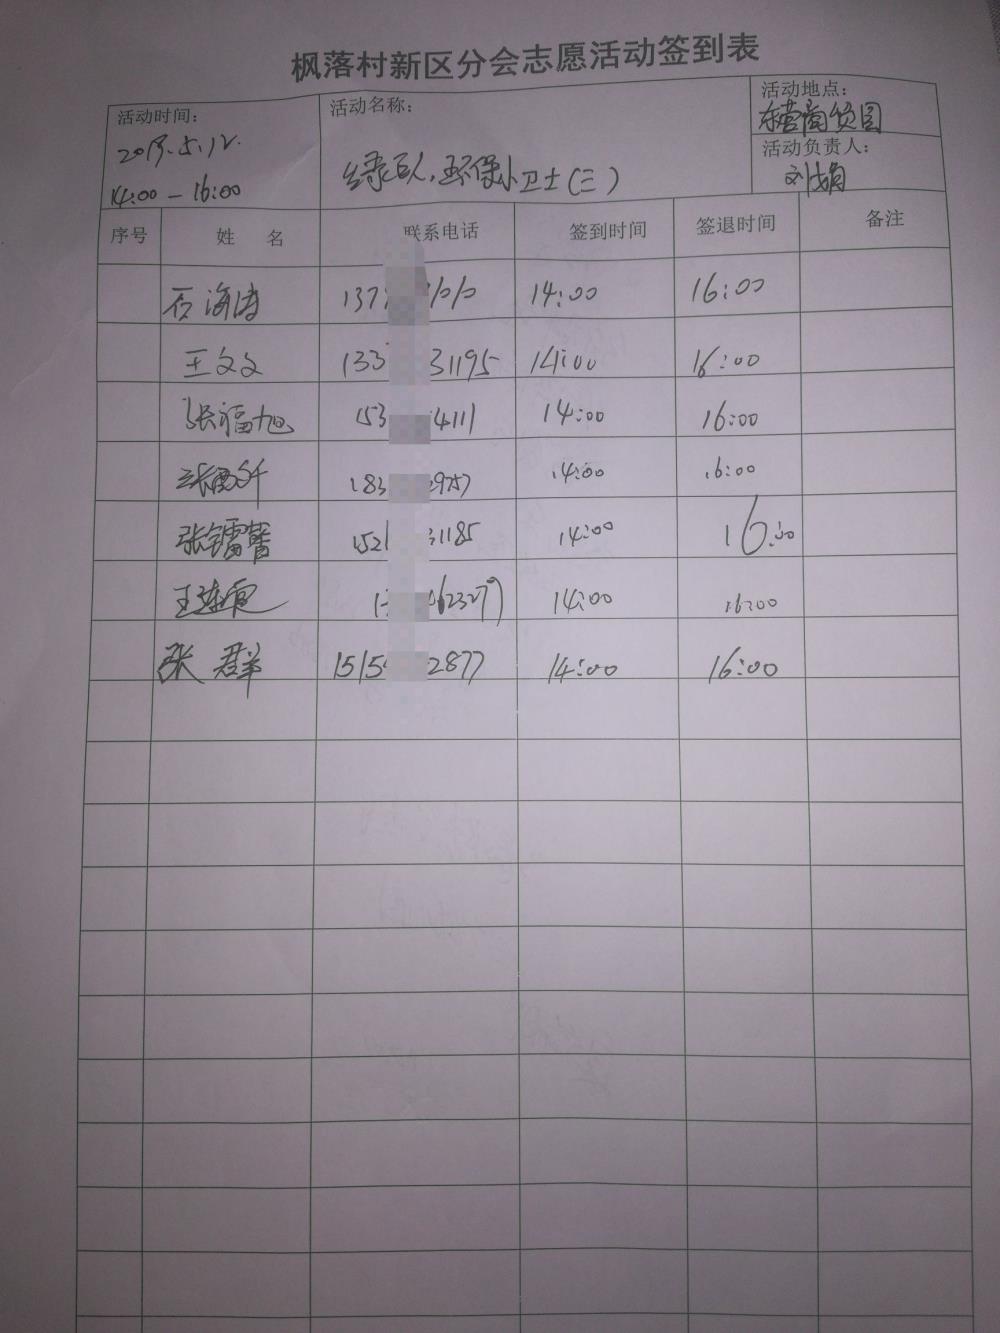 枫落村新区分会志愿活动签到表
活动时间: 活动名称: 活动地点:
东营商贸园
2019.5.12.
14:00-16:00 环保小卫士(三)
活动负责人:
刘娟
序号 姓名 联系电话 签到时间 签退时间 备注
石海涛 137 14:00 16:00
王文文 133 31195 14:00 16:00
张福旭 153 4111 14:00 16:00
183 2957 14:00 16:00
张镭馨 152 31185 14:00 16:00
王连霞 1 62327 14:00 16:00
张群 1515 2877 14:00 16:00